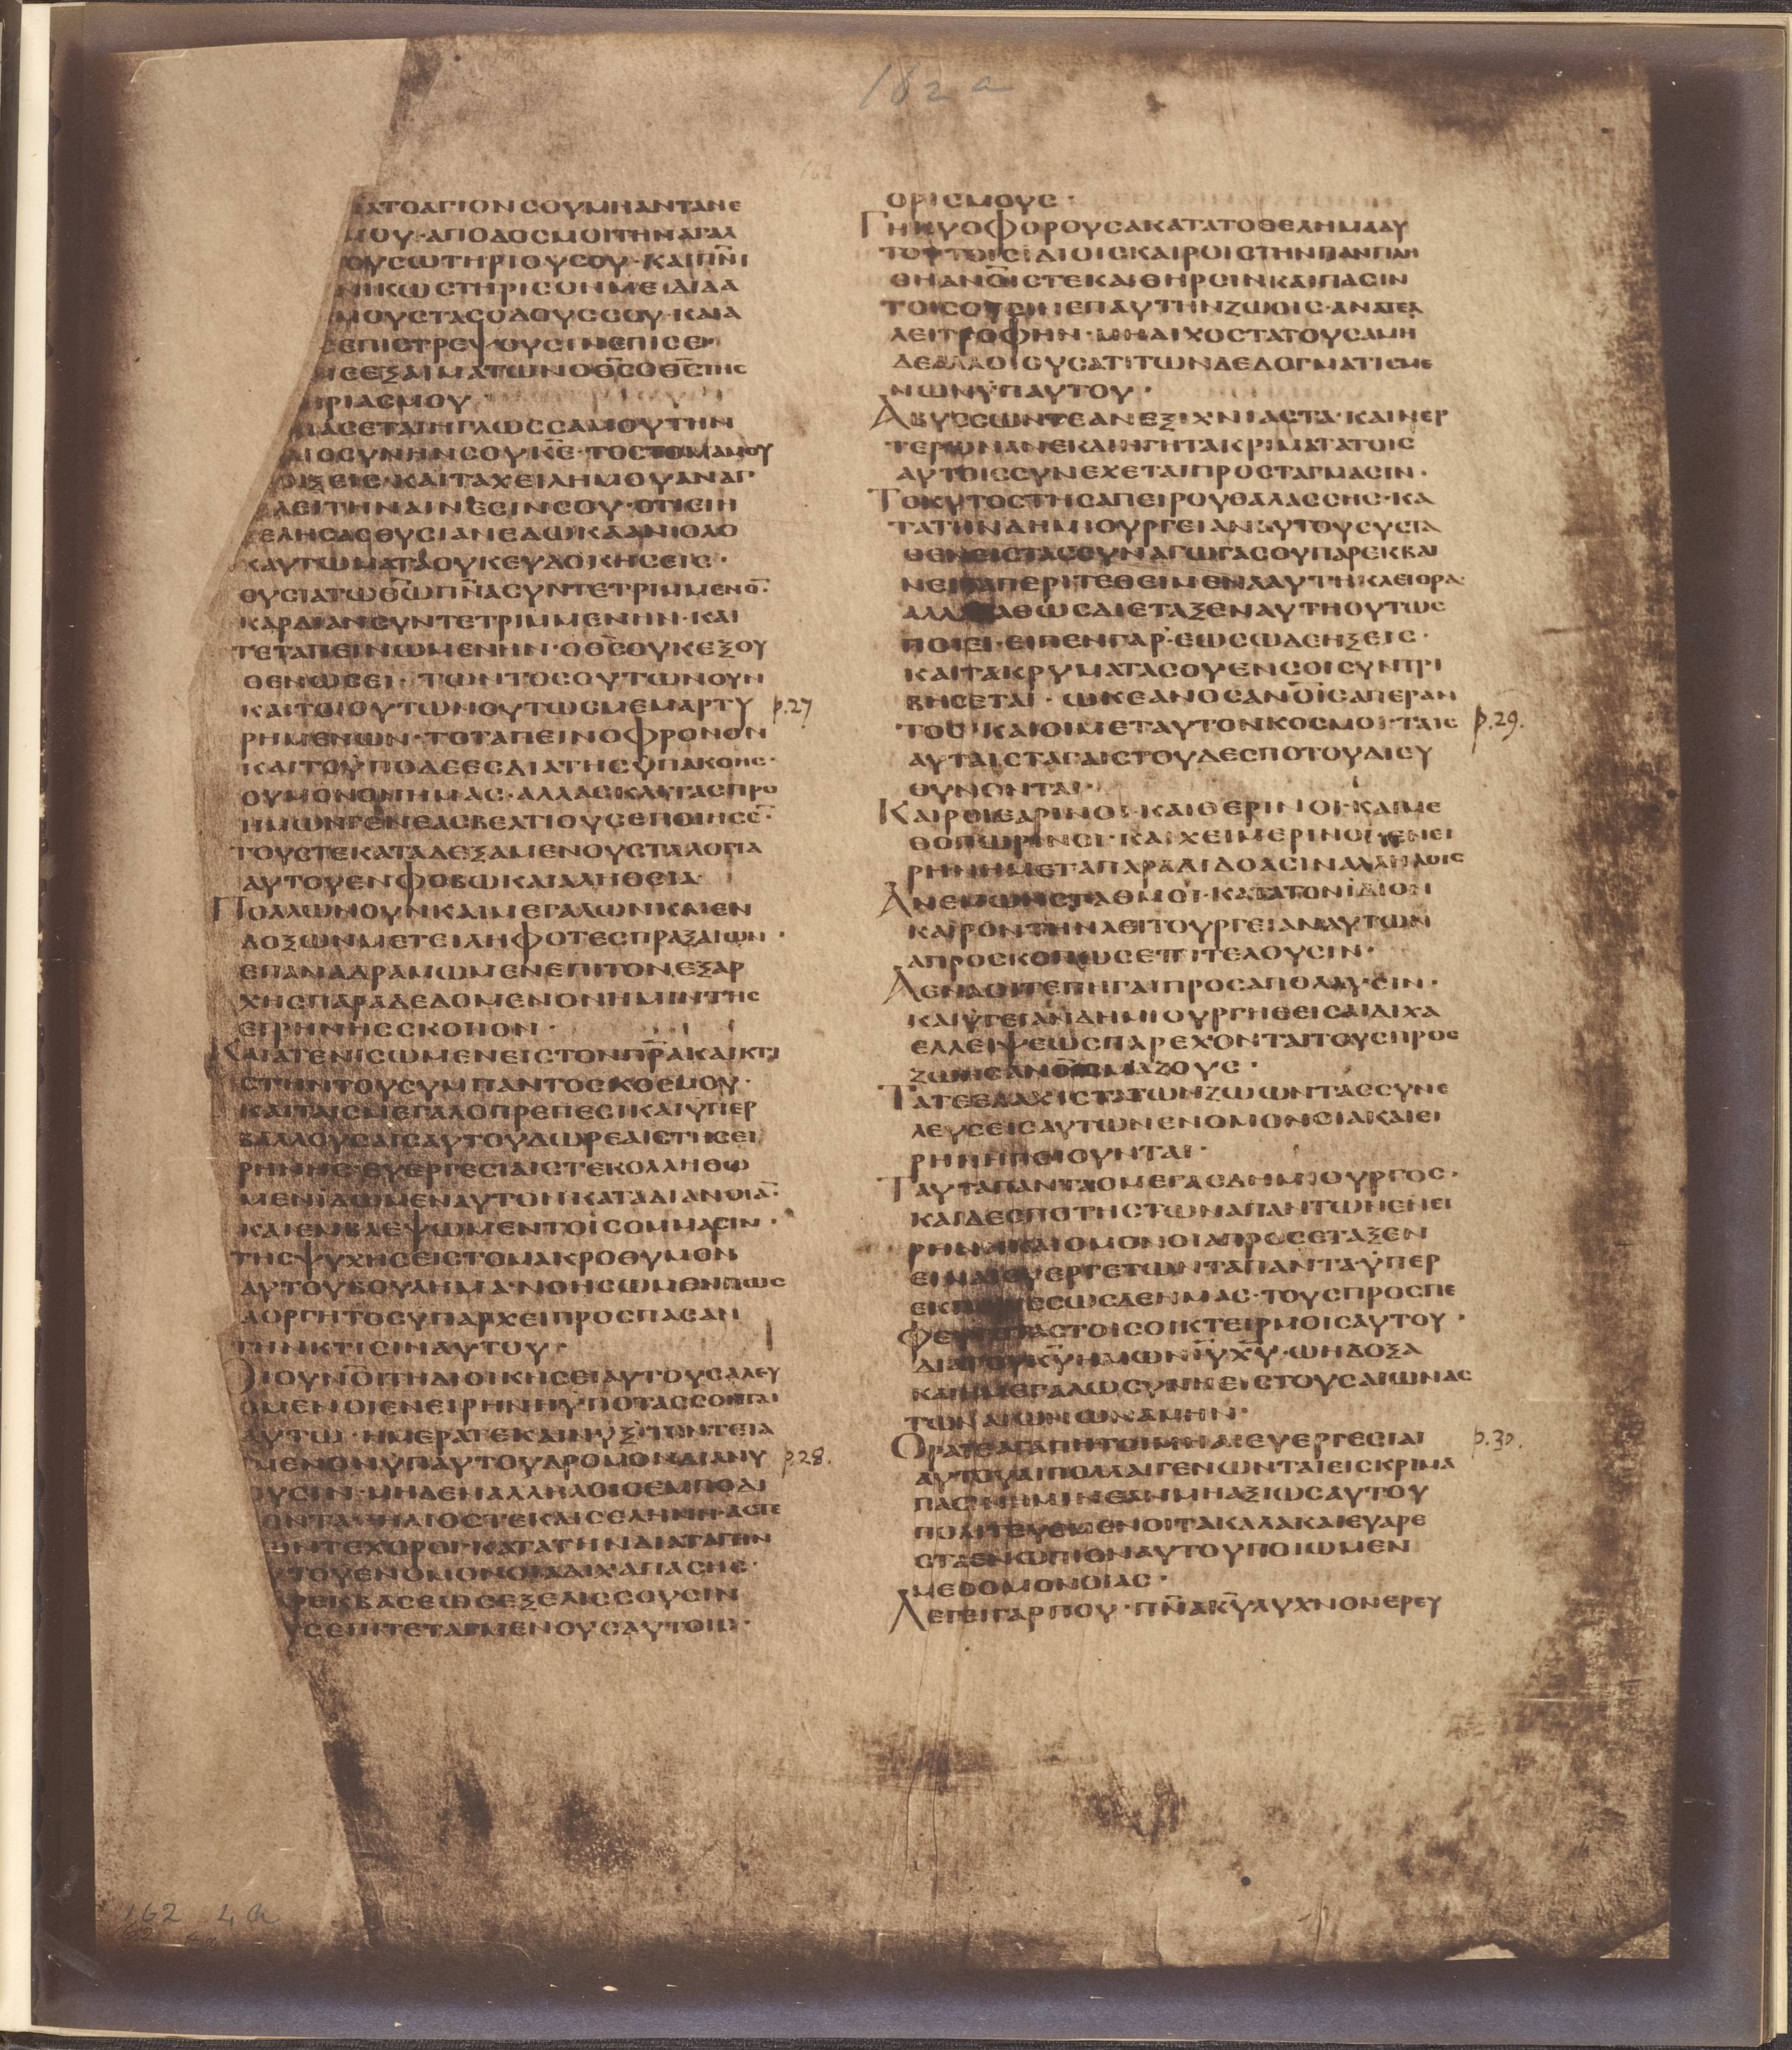 162 a
ΑΤΟΑΓΙΟΝϹΟΥΜΗΑΝΤΑΝΕ
ΜΟΥ·ΑΠΟΔΟϹΜΟΙΤΗΝΑΓΑΛ
ΟΥϹΩΤΗΡΙΟΥϹΟΥ·ΚΑΙΠΝΙ
ΝΙΚΩϹΤΗΡΙϹΟΝΜΕ·ΔΙΔΑ
ΜΟΥϹΤΑϹΟΔΟΥϹϹΟΥ·ΚΑΙΑ
ϹΕΠΙϹΤΡΕΨΟΥϹΙΝΕΠΙϹΕ·
ΜΕΕΞΑΙΜΑΤΩΝΟΘϹΟΘϹΤΗϹ
ΗΡΙΑϹΜΟΥ
ΙΑϹΕΤΑΙΗΓΛΩϹϹΑΜΟΥΤΗΝ
ΑΙΟϹΥΝΗΝϹΟΥΚΕ·ΤΟϹΤΟΜΑΜΟΥ
ΟΙΞΕΙϹ·ΚΑΙΤΑΧΕΙΛΗΜΟΥΑΝΑΓ·
ΛΕΙΤΗΝΑΙΝΕϹΙΝϹΟΥ·ΟΤΙΕΙΗ
ΕΛΗϹΑϹΘΥϹΙΑΝΕΔΩΚΑΑΝΟΛΟ
ΚΑΥΤΩΜΑΤΑΟΥΚΕΥΔΟΚΗϹΕΙϹ·
ΘΥϹΙΑΤΩΘΩΠΝΑϹΥΝΤΕΤΡΙΜΜΕΝΟ·
ΚΑΡΔΙΑΝϹΥΝΤΕΤΡΙΜΜΕΝΗΝ·ΚΑΙ
ΤΕΤΑΠΕΙΝΩΜΕΝΗΝ·ΟΘϹΟΥΚΕΞΟΥ
ΘΕΝΩϹΕΙ·ΤΩΝΤΟϹΟΥΤΩΝΟΥΝ
ΚΑΙΤΟΙΟΥΤΩΝΟΥΤΩϹΜΕΜΑΡΤΥ p.27
ΡΗΜΕΝΩΝ·ΤΟΤΑΠΕΙΝΟΦΡΟΝΟΝ
ΚΑΙΤΟΫΠΟΔΕΕϹΔΙΑΤΗϹΫΠΑΚΟΗϹ·
ΟΥΜΟΝΟΝΗΜΑϹ·ΑΛΛΑΚΑΙΤΑϹΠΡΟ
ΗΜΩΝΓΕΝΕΑϹΒΕΛΤΙΟΥϹΕΠΟΙΗϹΕ·
ΤΟΥϹΤΕΚΑΤΑΔΕΞΑΜΕΝΟΥϹΤΑΛΟΓΙΑ
ΑΥΤΟΥΕΝΦΟΒΩΚΑΙΑΛΗΘΕΙΑ
ΠΟΛΛΩΝΟΥΝΚΑΙΜΕΓΑΛΩΝΚΑΙΕΝ
ΔΟΞΩΝΜΕΤΕΙΛΗΦΟΤΕϹΠΡΑΞΑΙΩΝ·
ΕΠΑΝΑΔΡΑΜΩΜΕΝΕΠΙΤΟΝΕΞΑΡ
ΧΗϹΠΑΡΑΔΕΔΟΜΕΝΟΝΗΜΙΝΤΗϹ
ΕΙΡΗΝΗϹϹΚΟΠΟΝ·
ΚΑΙΑΤΕΝΙϹΩΜΕΝΕΙϹΤΟΝΠΡΑΚΑΙΚΤΙ
ϹΤΗΝΤΟΥϹΥΜΠΑΝΤΟϹΚΟϹΜΟΥ·
ΚΑΙΤΑΙϹΜΕΓΑΛΟΠΡΕΠΕϹΙΚΑΙΫΠΕΡ
ΒΑΛΛΟΥϹΑΙϹΑΥΤΟΥΔΩΡΕΑΙϹΤΗϹΕΙ
ΡΗΝΗϹ·ΕΥΕΡΓΕϹΙΑΙϹΤΕΚΟΛΛΗΘΩ
ΜΕΝΪΔΩΜΕΝΑΥΤΟΝΚΑΤΑΔΙΑΝΟΙΑ·
ΚΑΙΕΝΒΛΕΨΩΜΕΝΤΟΙϹΟΜΜΑϹΙΝ·
ΤΗϹΨΥΧΗϹΕΙϹΤΟΜΑΚΡΟΘΥΜΟΝ
ΑΥΤΟΥΒΟΥΛΗΜΑ·ΝΟΗϹΩΜΕΝΠΩϹ
ΑΟΡΓΗΤΟϹΥΠΑΡΧΕΙΠΡΟϹΠΑϹΑΝ
ΤΗΝΚΤΙϹΙΝΑΥΤΟΥ·
ΟΙΟΥΝΟΙΤΗΔΙΟΙΚΗϹΕΙΑΥΤΟΥϹΑΛΕΥ
ΟΜΕΝΟΙΕΝΕΙΡΗΝΗΫΠΟΤΑϹϹΟΝΤΑΙ
ΑΥΤΩ·ΗΜΕΡΑΤΕΚΑΙΝΥΞΤΟΝΤΕΤΑ
ΜΕΝΟΝΫΠΑΥΤΟΥΔΡΟΜΟΝΔΙΑΝΥ p.28.
ΟΥϹΙΝ·ΜΗΔΕΝΑΛΛΗΛΟΙϹΕΜΠΟΔΙ
ΟΝΤΑ·ΗΛΙΟϹΤΕΚΑΙϹΕΛΗΝΗ·ΑϹΤΕ
ΩΝΤΕΧΟΡΟΙ·ΚΑΤΑΤΗΝΔΙΑΤΑΓΗΝ
ΥΤΟΥΕΝΟΜΟΝΟΙΑΔΙΧΑΠΑϹΗϹ·
ΡΕΚΒΑϹΕΩϹΕΞΕΛΙϹϹΟΥϹΙΝ
ΥϹΕΠΙΤΕΤΑΓΜΕΝΟΥϹΑΥΤΟΙϹ·
ΟΡΙϹΜΟΥϹ·
ΓΗΚΥΟΦΟΡΟΥϹΑΚΑΤΑΤΟΘΕΛΗΜΑΑΥ
ΤΟΥΤΟΙϹΪΔΙΟΙϹΚΑΙΡΟΙϹΤΗΝΠΑΝΠΛΗ
ΘΗΑΝΟΙϹΤΕΚΑΙΘΗΡϹΙΝΚΑΙΠΑϹΙΝ
ΤΟΙϹΟΥϹΙΝΕΠΑΥΤΗΝΖΩΟΙϹ·ΑΝΑΤΕΛ
ΛΕΙΤΡΟΦΗΝ·ΜΗΔΙΧΟϹΤΑΤΟΥϹΑΜΗ
ΔΕΑΛΛΟΙΟΥϹΑΤΙΤΩΝΔΕΔΟΓΜΑΤΙϹΜΕ
ΝΩΝΫΠΑΥΤΟΥ·
ΑΒΥϹϹΩΝΤΕΑΝΕΞΙΧΝΙΑϹΤΑ·ΚΑΙΝΕΡ
ΤΕΡΩΝΑΝΕΚΔΙΗΓΗΤΑΚΡΙΜΑΤΑΤΟΙϹ
ΑΥΤΟΙϹϹΥΝΕΧΕΤΑΙΠΡΟϹΤΑΓΜΑϹΙΝ·
ΤΟΚΥΤΟϹΤΗϹΑΠΕΙΡΟΥΘΑΛΑϹϹΗϹ·ΚΑ
ΤΑΤΗΝΔΗΜΙΟΥΡΓΕΙΑΝΑΥΤΟΥϹΥϹΤΑ
ΘΕΝΕΙϹΤΑϹϹΥΝΑΓΩΓΑϹΟΥΠΑΡΕΚΒΑΙ
ΝΕΙΤΑΠΕΡΙΤΕΘΕΙΜΕΝΑΑΥΤΗΚΛΕΙΘΡΑ·
ΑΛΛΑΚΑΘΩϹΔΙΕΤΑΞΕΝΑΥΤΗΟΥΤΩϹ
ΠΟΙΕΙ·ΕΙΠΕΝΓΑΡ·ΕΩϹΩΔΕΗΞΕΙϹ·
ΚΑΙΤΑΚΡΥΜΑΤΑϹΟΥΕΝϹΟΙϹΥΝΤΡΙ
ΒΗϹΕΤΑΙ·ΩΚΕΑΝΟϹΑΝΟΙϹΑΠΕΡΑΝ
ΤΟϹ·ΚΑΙΟΙΜΕΤΑΥΤΟΝΚΟϹΜΟΙ·ΤΑΙϹ p.29.
ΑΥΤΑΙϹΤΑΓΑΙϹΤΟΥΔΕϹΠΟΤΟΥΔΙΕΥ
ΘΥΝΟΝΤΑΙ·
ΚΑΙΡΟΙΕΑΡΙΝΟΙ·ΚΑΙΘΕΡΙΝΟΙ·ΚΑΙΜΕ
ΘΟΠΩΡΙΝΟΙ·ΚΑΙΧΕΙΜΕΡΙΝΟΙ·ΕΝΕΙ
ΡΗΝΗΜΕΤΑΠΑΡΑΔΙΔΟΑϹΙΝΑΛΛΗΛΟΙϹ
ΑΝΕΜΩΝϹΤΑΘΜΟΙ·ΚΑΤΑΤΟΝΪΔΙΟΝ
ΚΑΙΡΟΝΤΗΝΛΕΙΤΟΥΡΓΕΙΑΝΑΥΤΩΝ
ΑΠΡΟϹΚΟΠΩϹΕΠΙΤΕΛΟΥϹΙΝ·
ΑΕΝΑΟΙΤΕΠΗΓΑΙΠΡΟϹΑΠΟΛΑΥϹΙΝ·
ΚΑΙΫΓΕΙΑΝΔΗΜΙΟΥΡΓΗΘΕΙϹΑΙΔΙΧΑ
ΕΛΛΕΙΨΕΩϹΠΑΡΕΧΟΝΤΑΙΤΟΥϹΠΡΟϹ
ΖΩΗϹΑΝΟΙϹΜΑΖΟΥϹ·
ΤΑΤΕΕΛΑΧΙϹΤΑΤΩΝΖΩΩΝΤΑϹϹΥΝΕ
ΛΕΥϹΕΙϹΑΥΤΩΝΕΝΟΜΟΝΟΙΑΚΑΙΕΙ
ΡΗΝΗΠΟΙΟΥΝΤΑΙ·
ΤΑΥΤΑΠΑΝΤΑΟΜΕΓΑϹΔΗΜΙΟΥΡΓΟϹ·
ΚΑΙΔΕϹΠΟΤΗϹΤΩΝΑΠΑΝΤΩΝΕΝΕΙ
ΡΗΝΗΚΑΙΟΜΟΝΟΙΑΠΡΟϹΕΤΑΞΕΝ
ΕΙΝΑΙΕΥΕΡΓΕΤΩΝΤΑΠΑΝΤΑ·ΫΠΕΡ
ΕΚΠΕΡΙϹϹΩϹΔΕΗΜΑϹ·ΤΟΥϹΠΡΟϹΠΕ
ΦΕΥΓΟΤΑϹΤΟΙϹΟΙΚΤΕΙΡΜΟΙϹΑΥΤΟΥ·
ΔΙΑΤΟΥΚΥΗΜΩΝΙΥΧΥ·ΩΗΔΟΞΑ
ΚΑΙΗΜΕΓΑΛΩϹΥΝΗΕΙϹΤΟΥϹΑΙΩΝΑϹ
ΤΩΝΑΙΩΝΩΝΑΜΗΝ·
ΟΡΑΤΕΑΓΑΠΗΤΟΙΜΗΑΙΕΥΕΡΓΕϹΙΑΙ p.30.
ΑΥΤΟΥΑΙΠΟΛΛΑΙΓΕΝΩΝΤΑΙΕΙϹΚΡΙΜΑ
ΠΑϹΙΝΗΜΙΝΕΑΝΜΗΑΞΙΩϹΑΥΤΟΥ
ΠΟΛΙΤΕΥΟΜΕΝΟΙΤΑΚΑΛΑΚΑΙΕΥΑΡΕ
ϹΤΑΕΝΩΠΙΟΝΑΥΤΟΥΠΟΙΩΜΕΝ
ΜΕΘΟΜΟΝΟΙΑϹ·
ΛΕΓΕΙΓΑΡΠΟΥ·ΠΝΑΚΥΛΥΧΝΟΝΕΡΕΥ
162 4 a